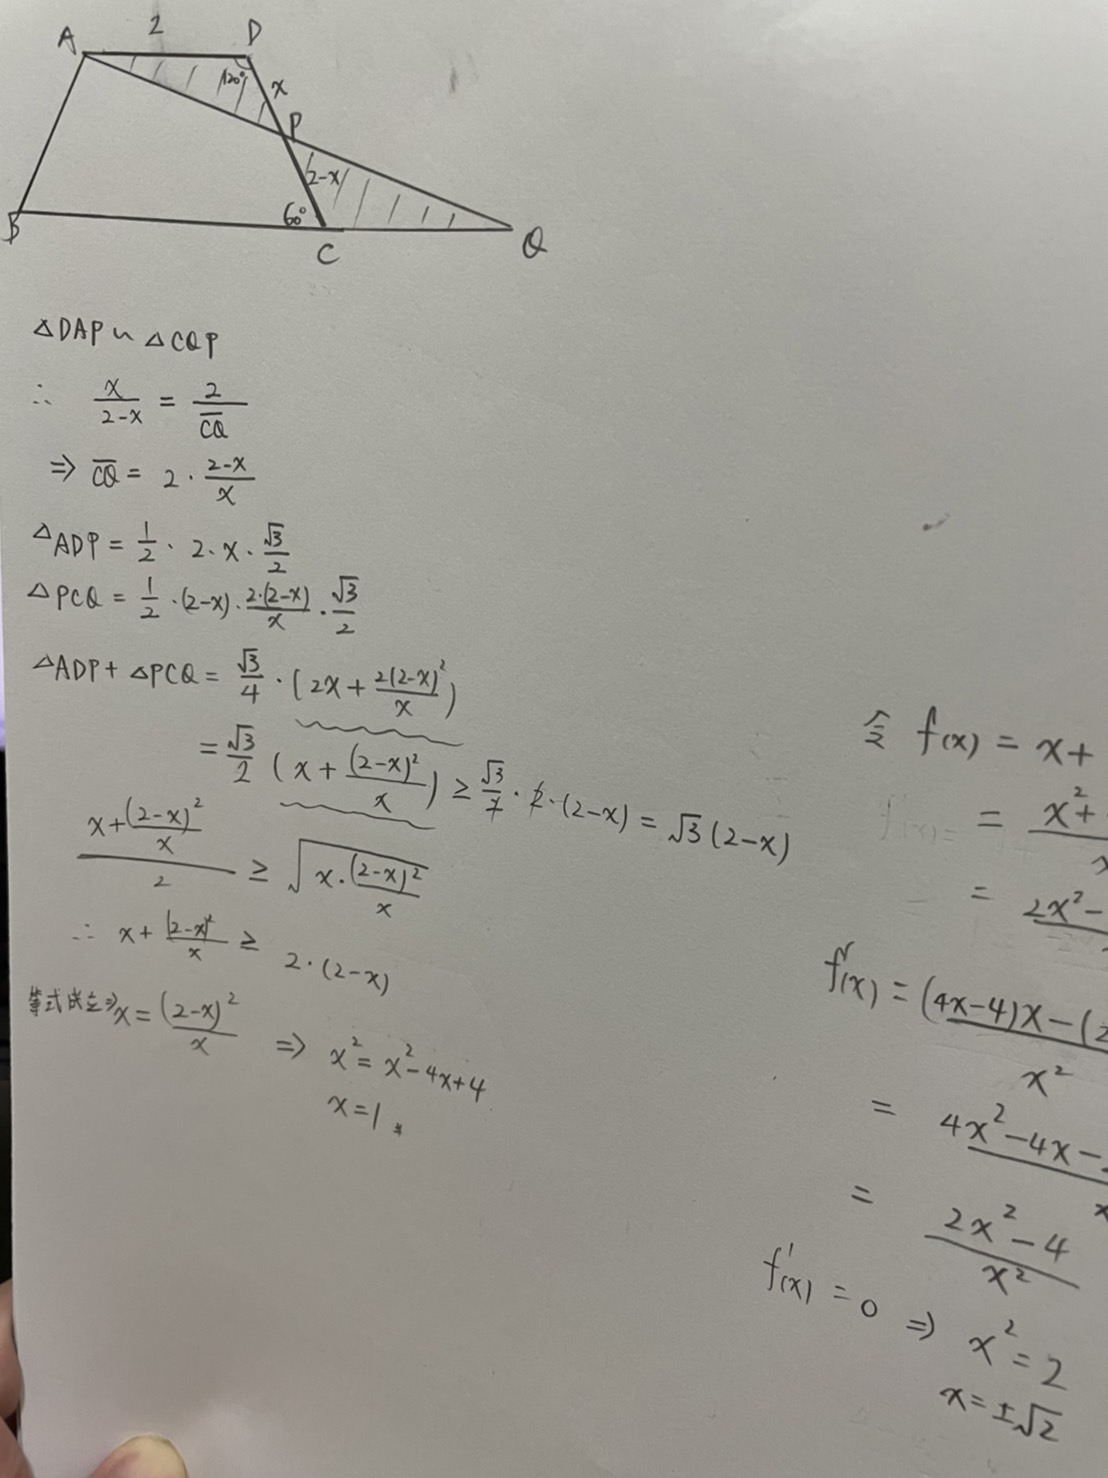 2
A D
120° x
P
2-x
60°
B C Q
△DAP ~ △CQP
∴ x/(2-x) = 2/C̅Q̅
⇒ C̅Q̅ = 2 · (2-x)/x
△ADP = 1/2 · 2 · x · √3/2
△PCQ = 1/2 · (2-x) · 2·(2-x)/x · √3/2
△ADP + △PCQ = √3/4 · (2x + 2(2-x)²/x)
= √3/2 (x + (2-x)²/x) ≥ √3/2 · 2 · (2-x) = √3 (2-x)
(x + (2-x)²/x)/2 ≥ √(x · (2-x)²/x)
∴ x + (2-x)²/x ≥ 2 · (2-x)
等式成立⇒ x = (2-x)²/x ⇒ x² = x² - 4x + 4
x = 1
令 f(x) = x +
= x² +
= 2x² -
f'(x) = (4x-4)x - (2
x²
= 4x² - 4x -
= (2x² - 4)/x²
f'(x) = 0 ⇒ x² = 2
x = ±√2